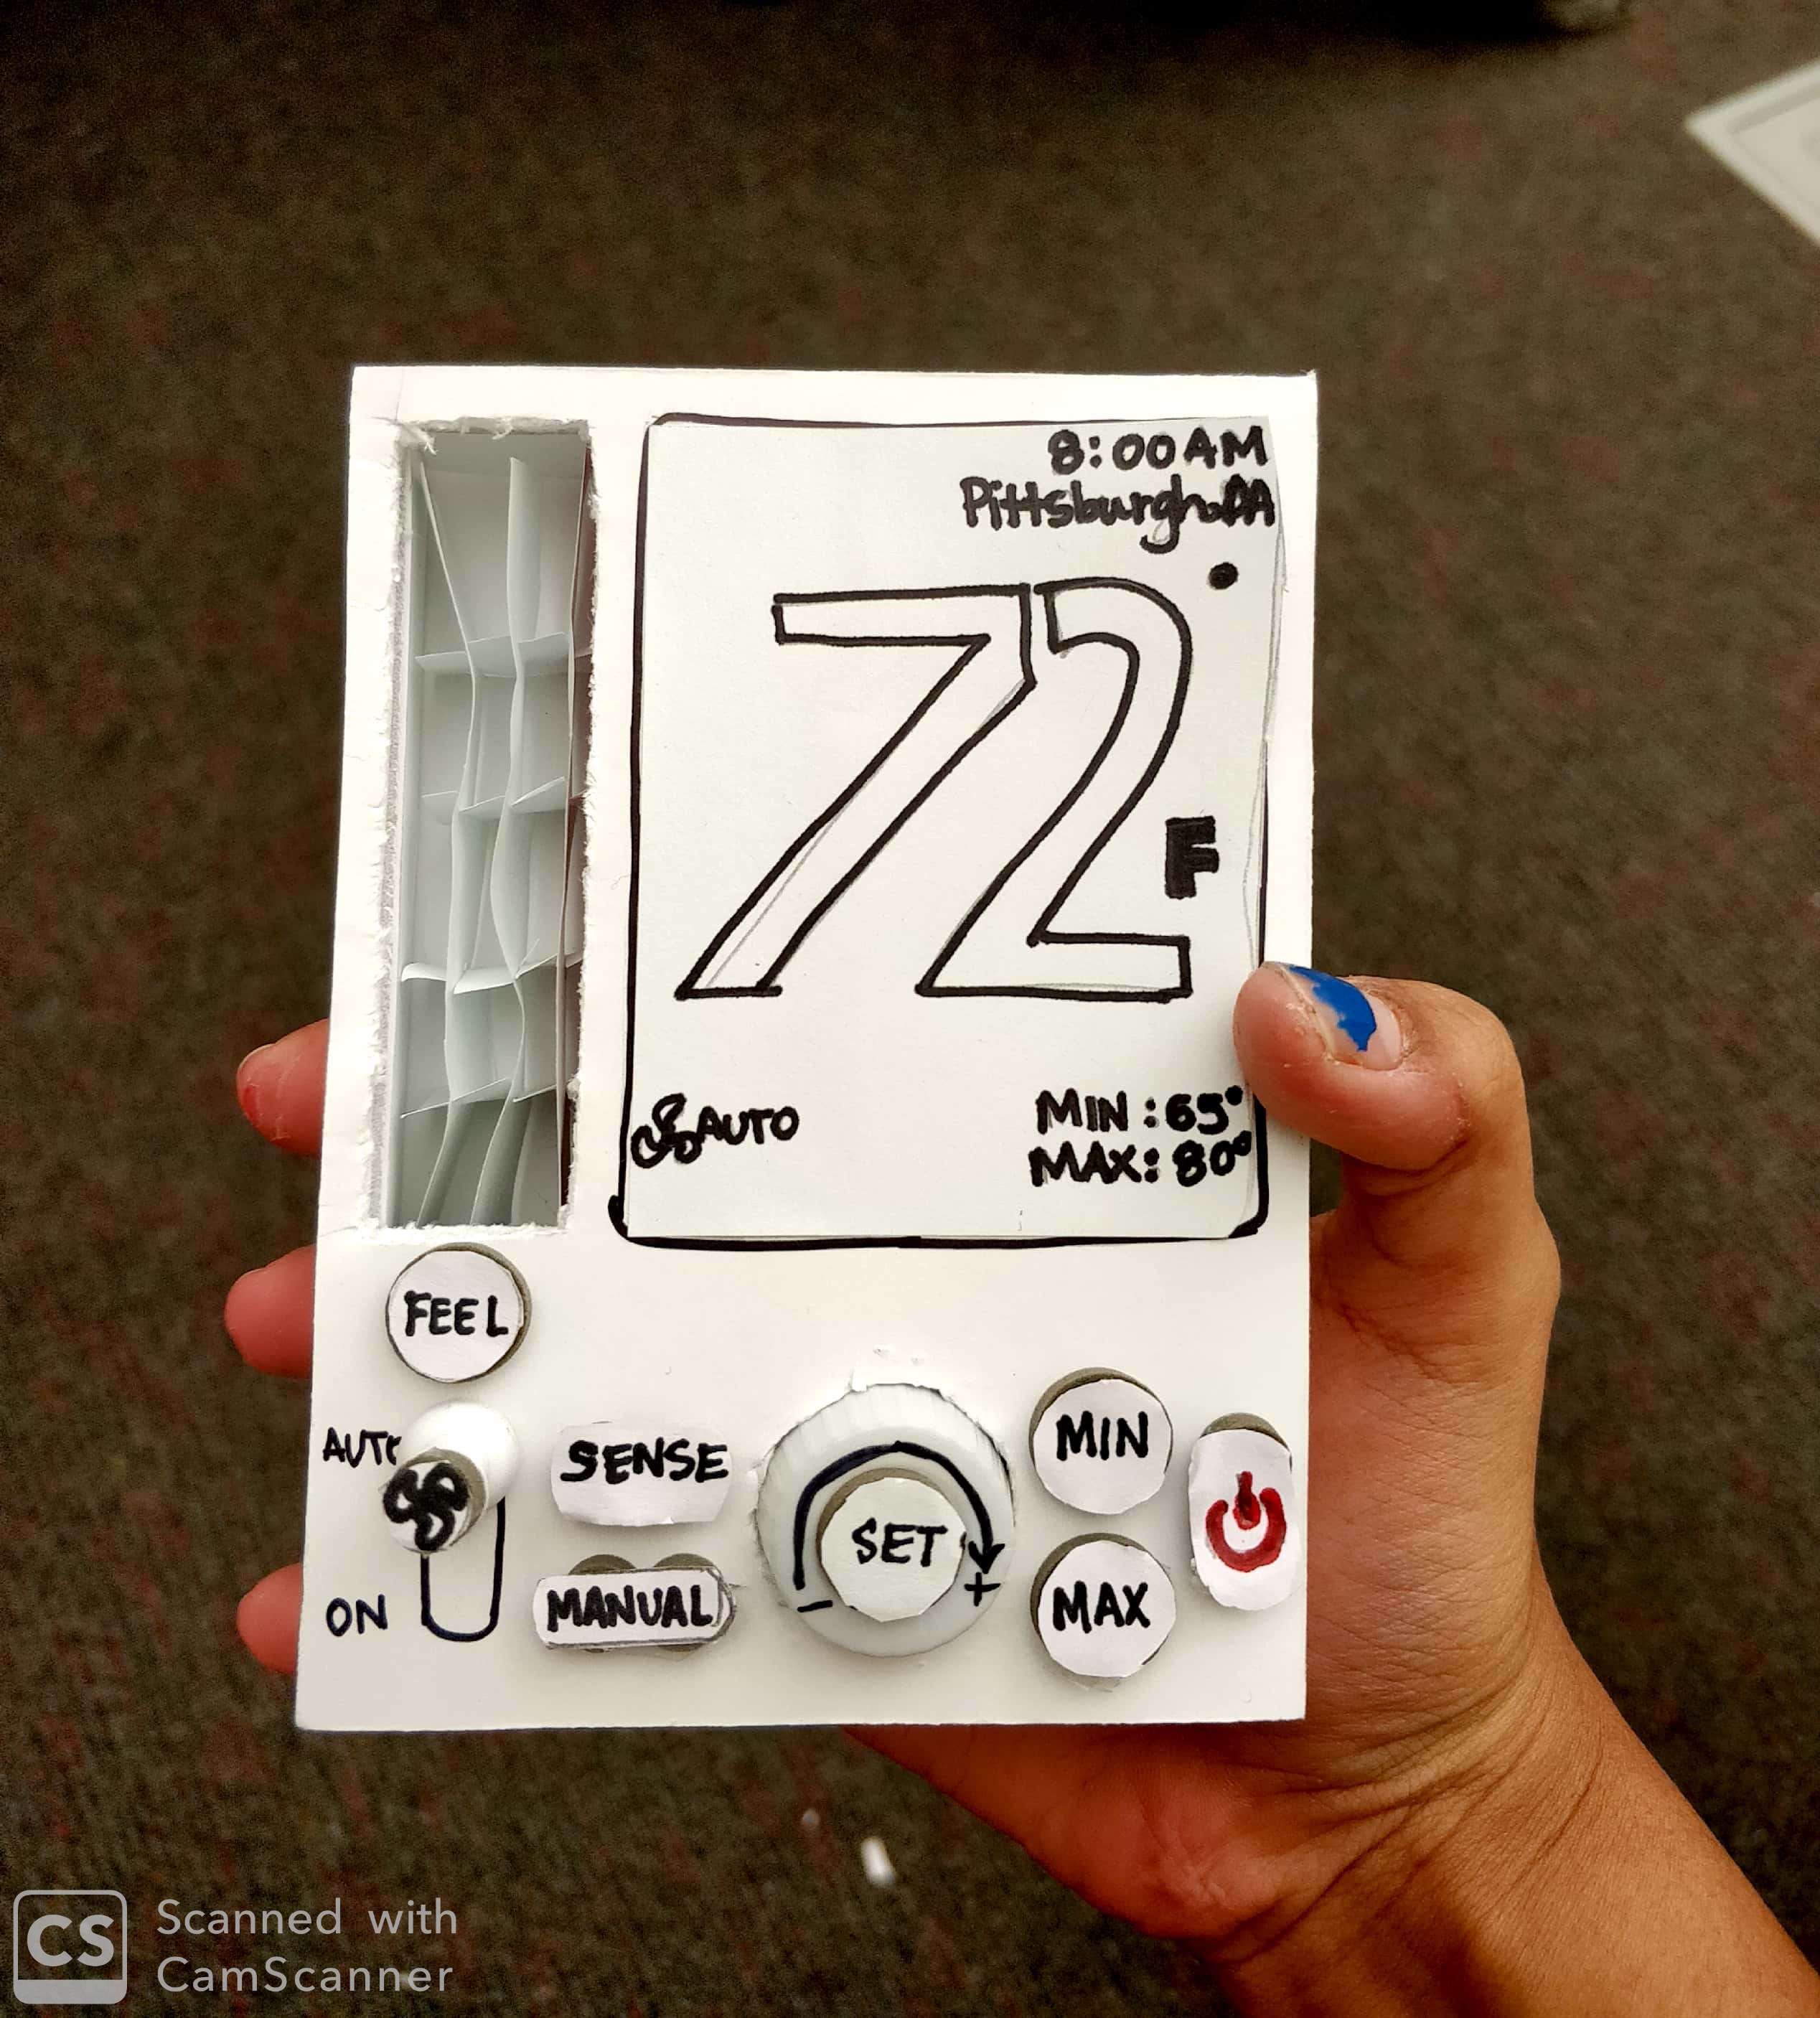 8:00AM
Pittsburgh, PA
72°
F
AUTO
MIN : 65°
MAX: 80°
FEEL
AUTO
ON
SENSE
MANUAL
SET
- +
MIN
MAX
CS
Scanned with
CamScanner